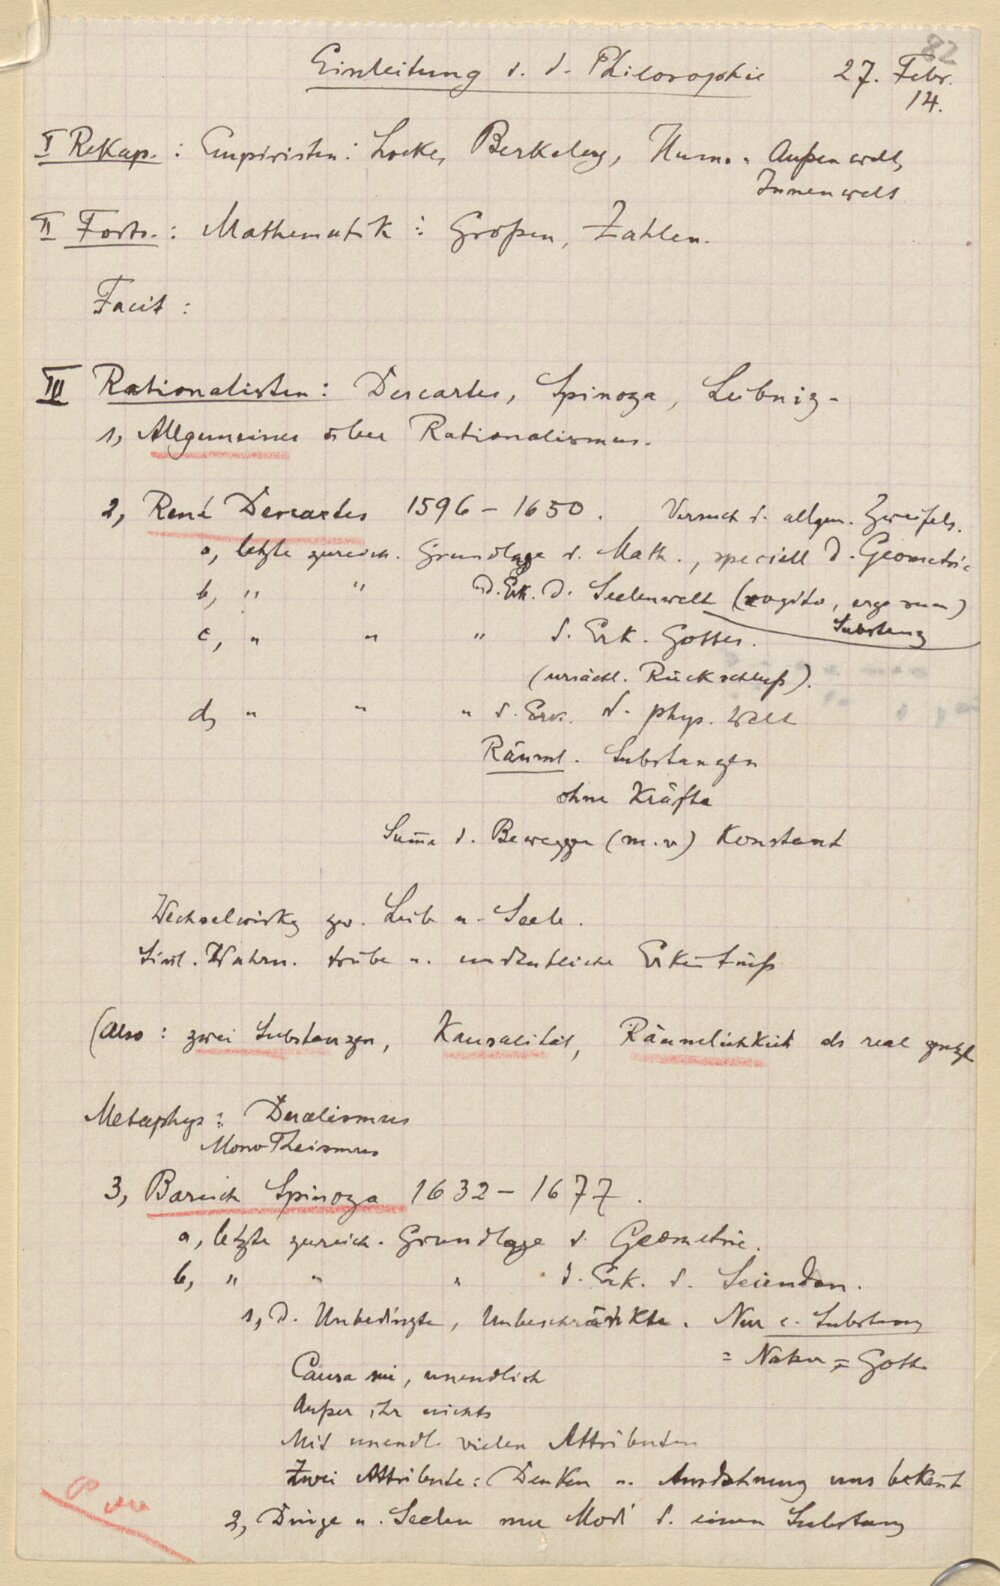 82
Einleitung i. d. Philosophie 27. Febr.
14.
I Rekap. : Empiristen : Locke, Berkeley, Hume. Außenwelt,
Innenwelt
II Forts. : Mathematik : Größen, Zahlen.
Facit :
III Rationalisten : Descartes, Spinoza, Leibniz.
1, Allgemeines über Rationalismus.
2, René Descartes 1596 – 1650 . Versuch d. allgem. Zweifels.
a, letzte zureich. Grundlage d. Math., speciell d. Geometrie
b, " " d. Erk. d. Seelenwelt (cogito, ergo sum)
Substanz
c, " " " d. Erk. Gottes.
(ursächl. Rückschluß).
d, " " " d. Erk. d. phys. Welt
Räuml. Substanzen
ohne Kräfte
Sum̄e d. Bewegge (m.v) Konstant
Wechselwirkg zw. Leib u. Seele.
Sinnl. Wahrn. trübe u. undeutliche Erken̄tniß
(Also : zwei Substanzen, Kausalität, Räumlichkeit als real gesetzt
Metaphys : Dualismus
MonoTheismus
3, Baruch Spinoza 1632 – 1677 .
a, letzte zureich. Grundlage d. Geometrie.
b, " " " d. Erk. d. Seienden.
1, D. Unbedingte, Unbeschränkte. Nur e. Substanz
= Natur = Gott
Causa sui, unendlich
Außer ihr nichts
Mit unendl. vielen Attributen
Zwei Attribute : Denken u. Ausdehnung uns bekan̄t
2, Dinge u. Seelen nur Modi d. einen Substanz